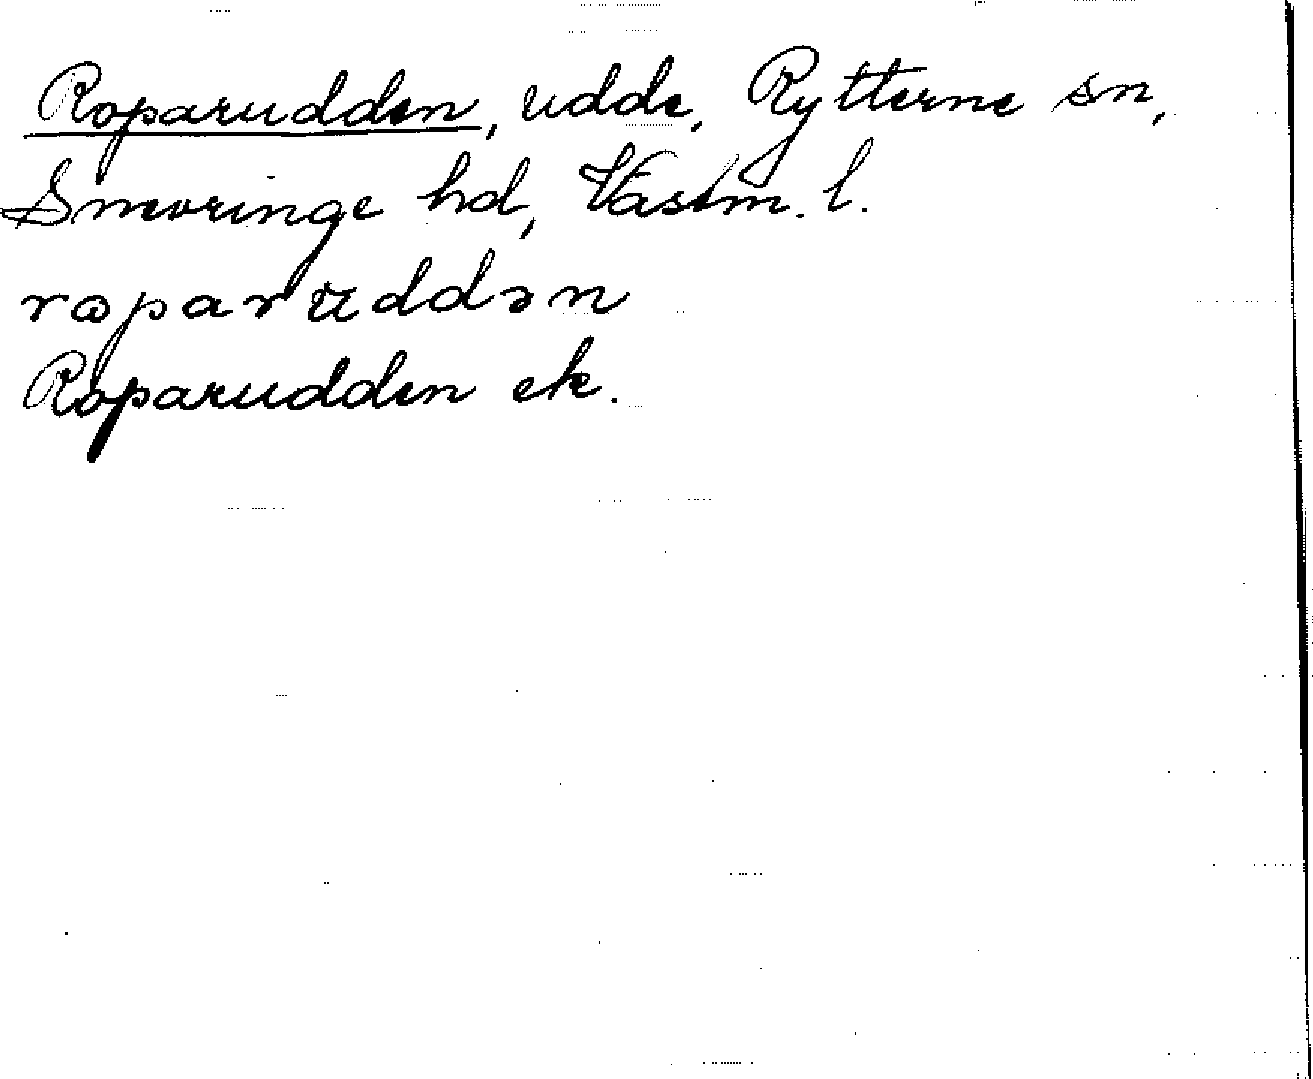 Roparudden, udde, Rytterne sn,
Snevringe hd, Västm. l.
roparuddən
Roparudden ek.